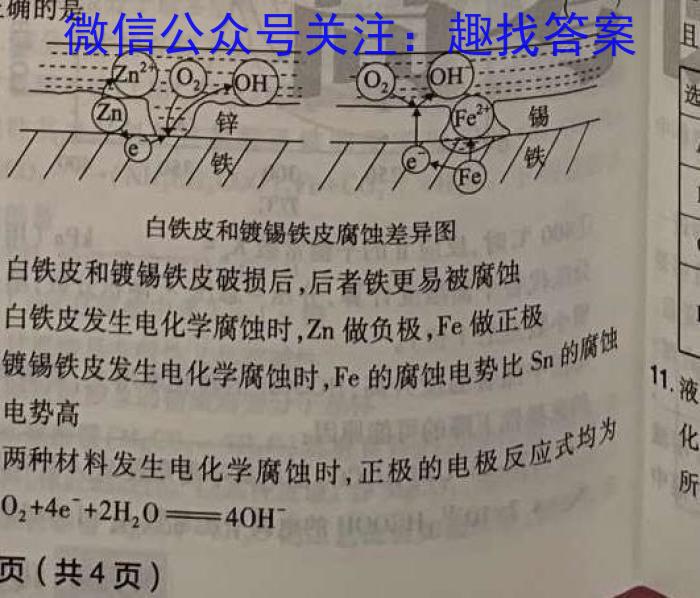 确的是
微信公众号关注：趣找答案
Zn²⁺ O₂ OH⁻ Zn e⁻ 锌 铁
O₂ OH⁻ Fe²⁺ 锡 e⁻ Fe 铁
白铁皮和镀锡铁皮腐蚀差异图
白铁皮和镀锡铁皮破损后,后者铁更易被腐蚀
白铁皮发生电化学腐蚀时,Zn 做负极,Fe 做正极
镀锡铁皮发生电化学腐蚀时,Fe 的腐蚀电势比 Sn 的腐蚀
电势高
两种材料发生电化学腐蚀时,正极的电极反应式均为
O₂+4e⁻+2H₂O══4OH⁻
页(共4页)
且
选
11.液
化
所